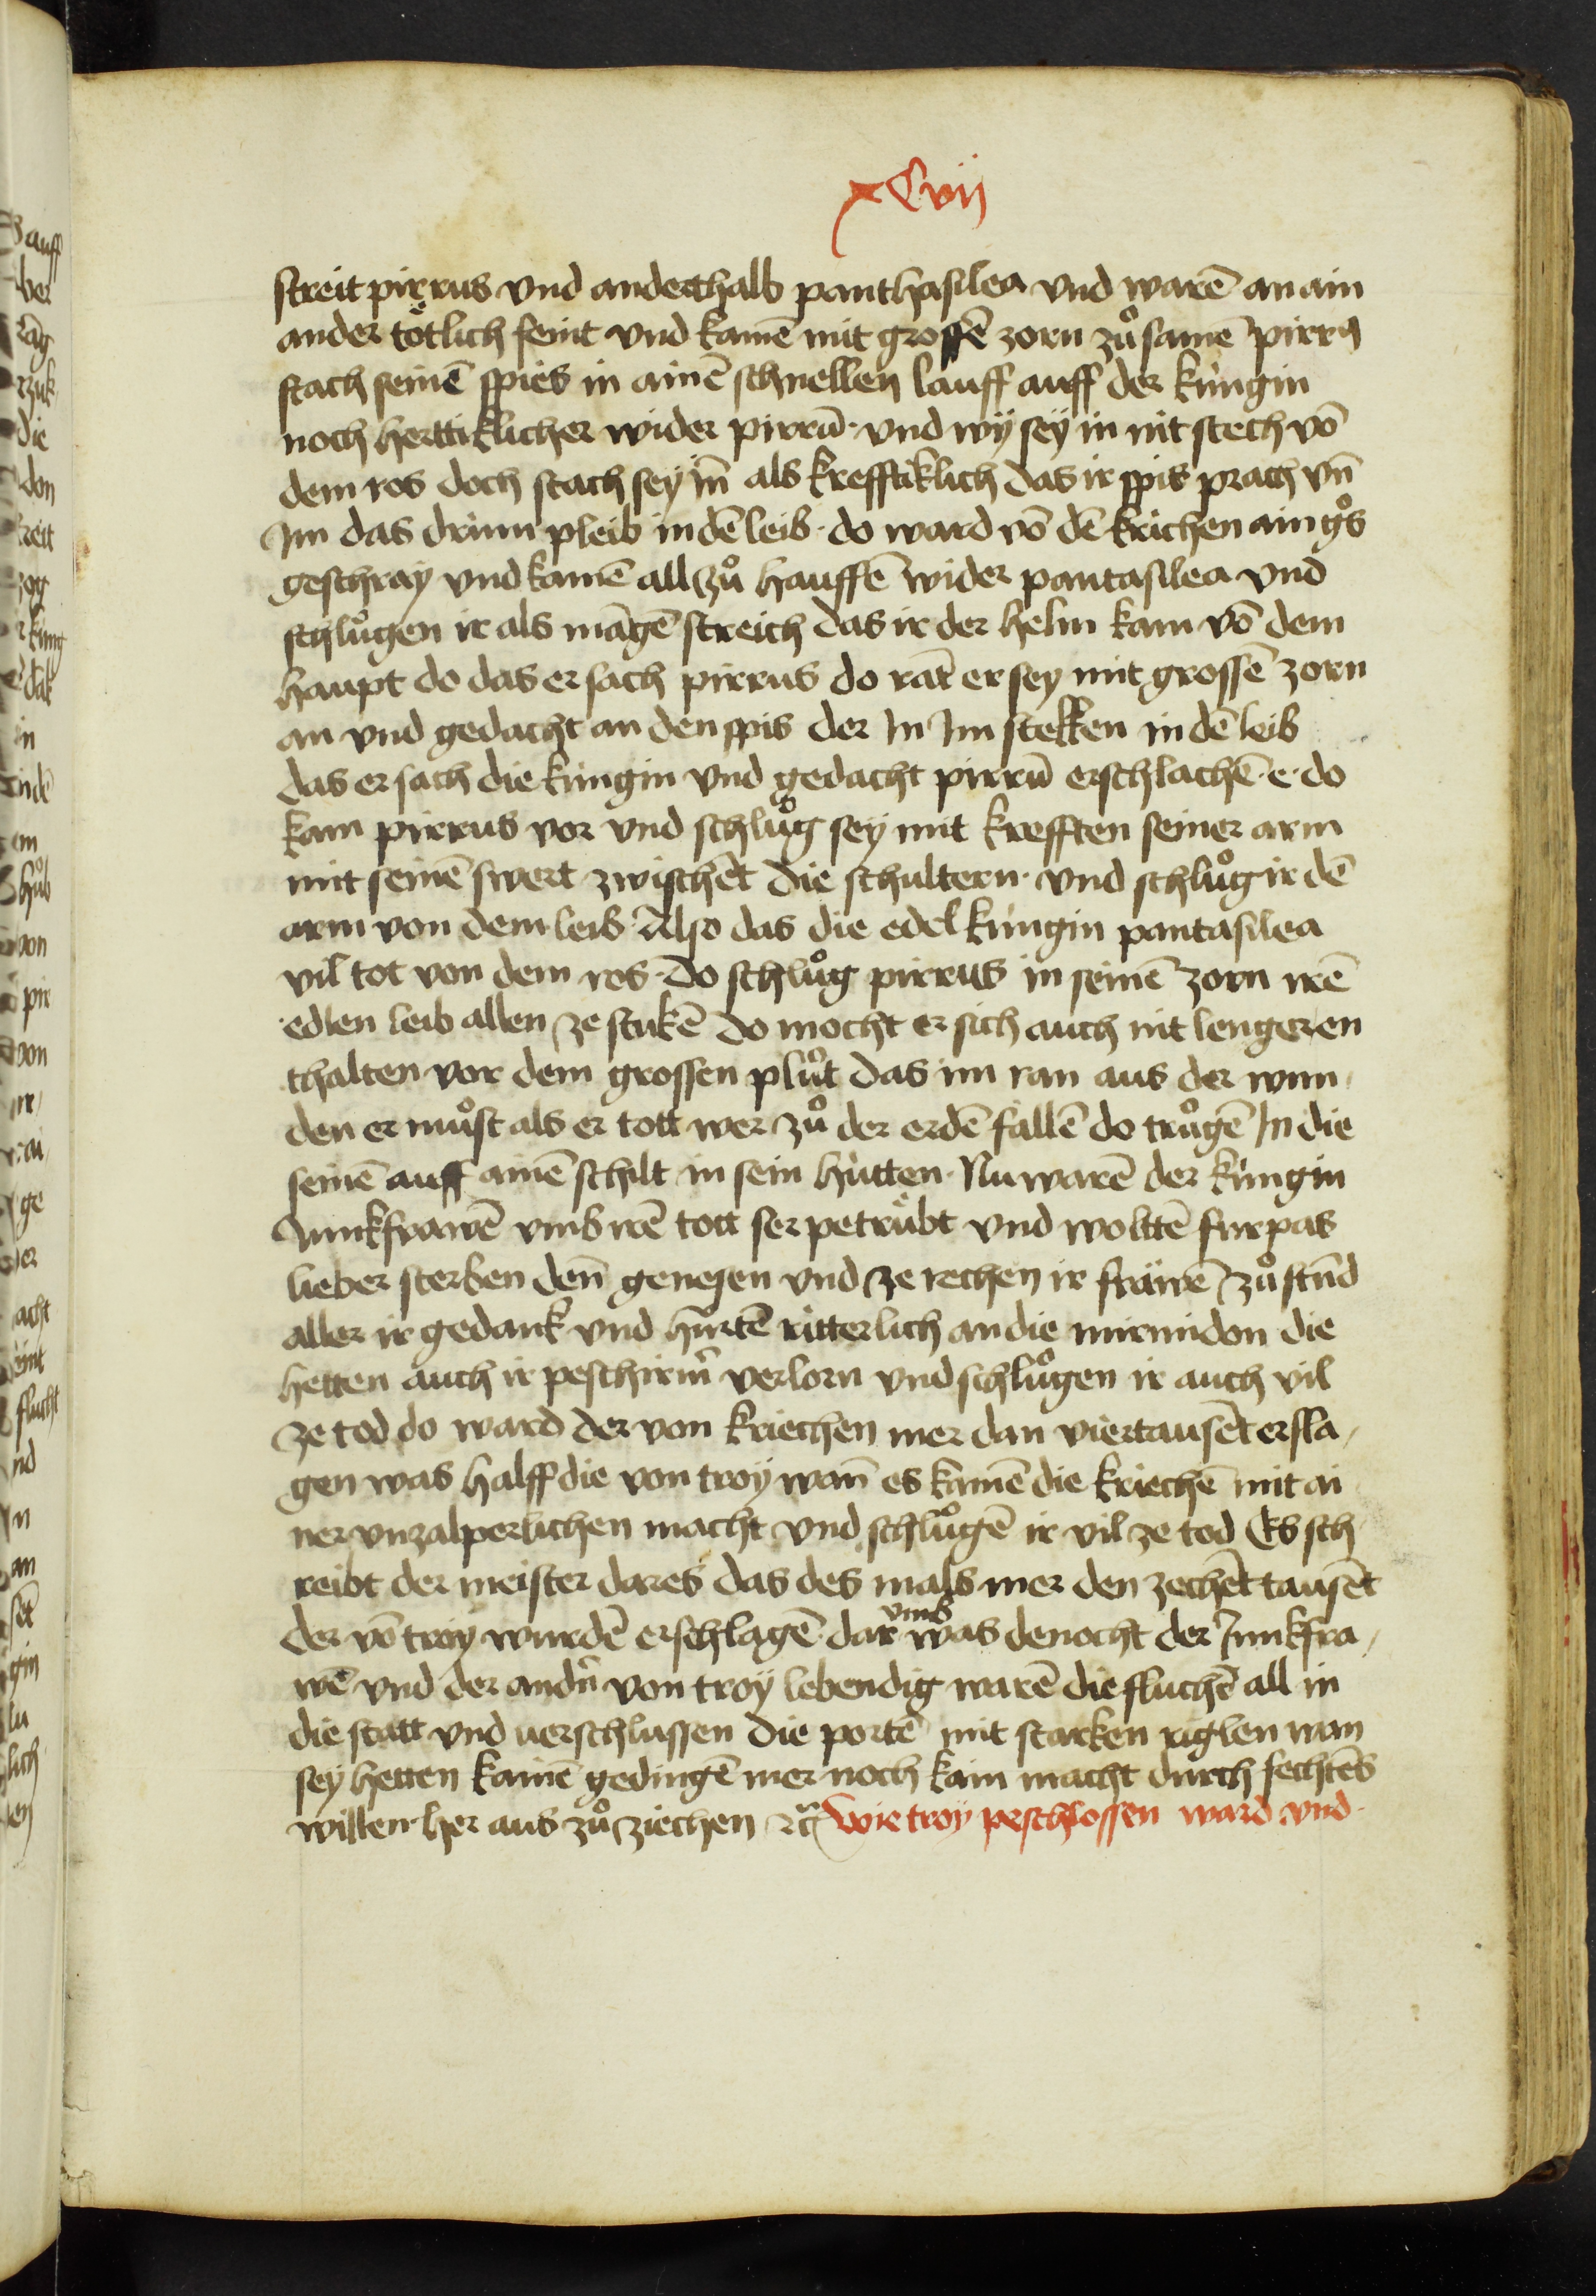 xLvij
streit pirrus vnd anderthalb panthasilea vnd warē an ain
ander tötlich feint vnd kamē mit grossē zorn zů samē pirrꝰ
stach seinē spies in ainē schnellen lauff auff der küngin
noch herttiklicher wider pirrū · vnd wÿ seÿ in nit stech vō
dem ros doch stach seÿ in̄ als krefftiklich das ir spis prach vn̄
Im das drum pleib in dē leib · do ward vō dē krichen ain gͦs
geschraÿ vnd kamē all zů hauffē wider pantasilea vnd
schlůgen ir als māgē streich das ir der helm kam vō dem
haupt do das ersach pirrus do rāt er seÿ mit grossē zorn
an vnd gedacht an den spis der In Im stekken in dē leib
das ersach die küngin vnd gedacht pirrū erschlachē · e · do
kam pirrus vor vnd schlůg seÿ mit krefften seiner arm
mit seinē swert zwischēt die schultern · vnd schlůg ir dē
arm von dem leib · Also das die edel küngin pantasilea
vil tot von dem ros · do schlůg pirrus in seinē zorn irē
edlen leib allen ze stukē do mocht er sich auch nit lenger en
thalten vor dem grossen plůt das im ran aus der wun
den er můst als er tott wer zů der erdē fallē do trůgē In die
seinē auff ainē schilt in sein hütten · Nu warē der küngin
Iunkfrawē vmb irē tott ser petrübt vnd woltē furpas
lieber sterben den̄ genesen vnd ze rechen ir frawē zů stūd
aller ir gedank vnd hurtē ritterlich an die mirmidon die
hetten auch ir peschirm̄ verlorn vnd schlůgen ir auch vil
ze tod do ward der von kriechen mer dan viertausēt ersla
gen was halff die von troÿ wan̄ es kamē die kriechē mit ai
ner vnzalperlichen macht vnd schlůgē ir vil ze tod Es sch
reibt der meister dares das des mals mer den zechēt tausēt
der vō troÿ wurdē erschlagē · dar vmb was denocht der Iunkfra
wē vnd der andn̄ von troÿ lebendig warē die fluchē all in
die statt vnd verschlussen die portē mit starken riglen wan
seÿ hetten kainē gedingē mer noch kain macht durch fechtēs
willen her aus zů ziechen ꝛc̄ wie troÿ peschlossen ward vnd